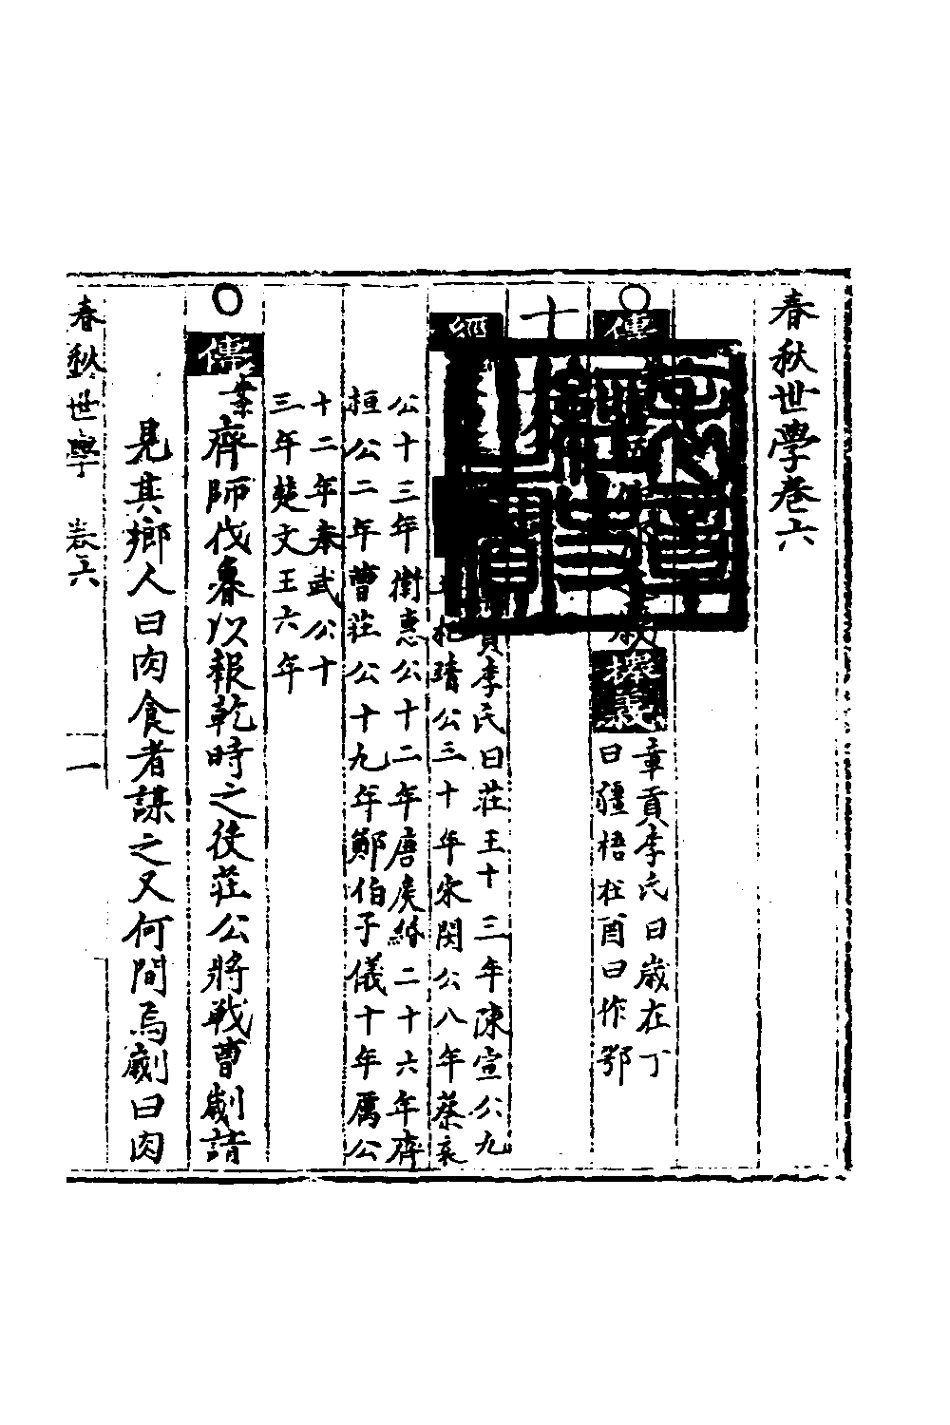 春秋世學卷六
○傳
釋義
章貢李氏曰歲在丁
曰疆梧在酉曰作鄂
十
經
貢李氏曰莊王十三年陳宣公九
杞靖公三十年宋閔公八年蔡哀
公十三年衛惠公十二年唐侯緡二十六年齊
桓公二年曹莊公十九年鄭伯子儀十年厲公
十二年秦武公十
三年楚文王六年
○傳業齊師伐魯以報乾時之役莊公將戰曹劌請
見其鄉人曰肉食者謀之又何間焉劌曰肉
春秋世學 卷六 一